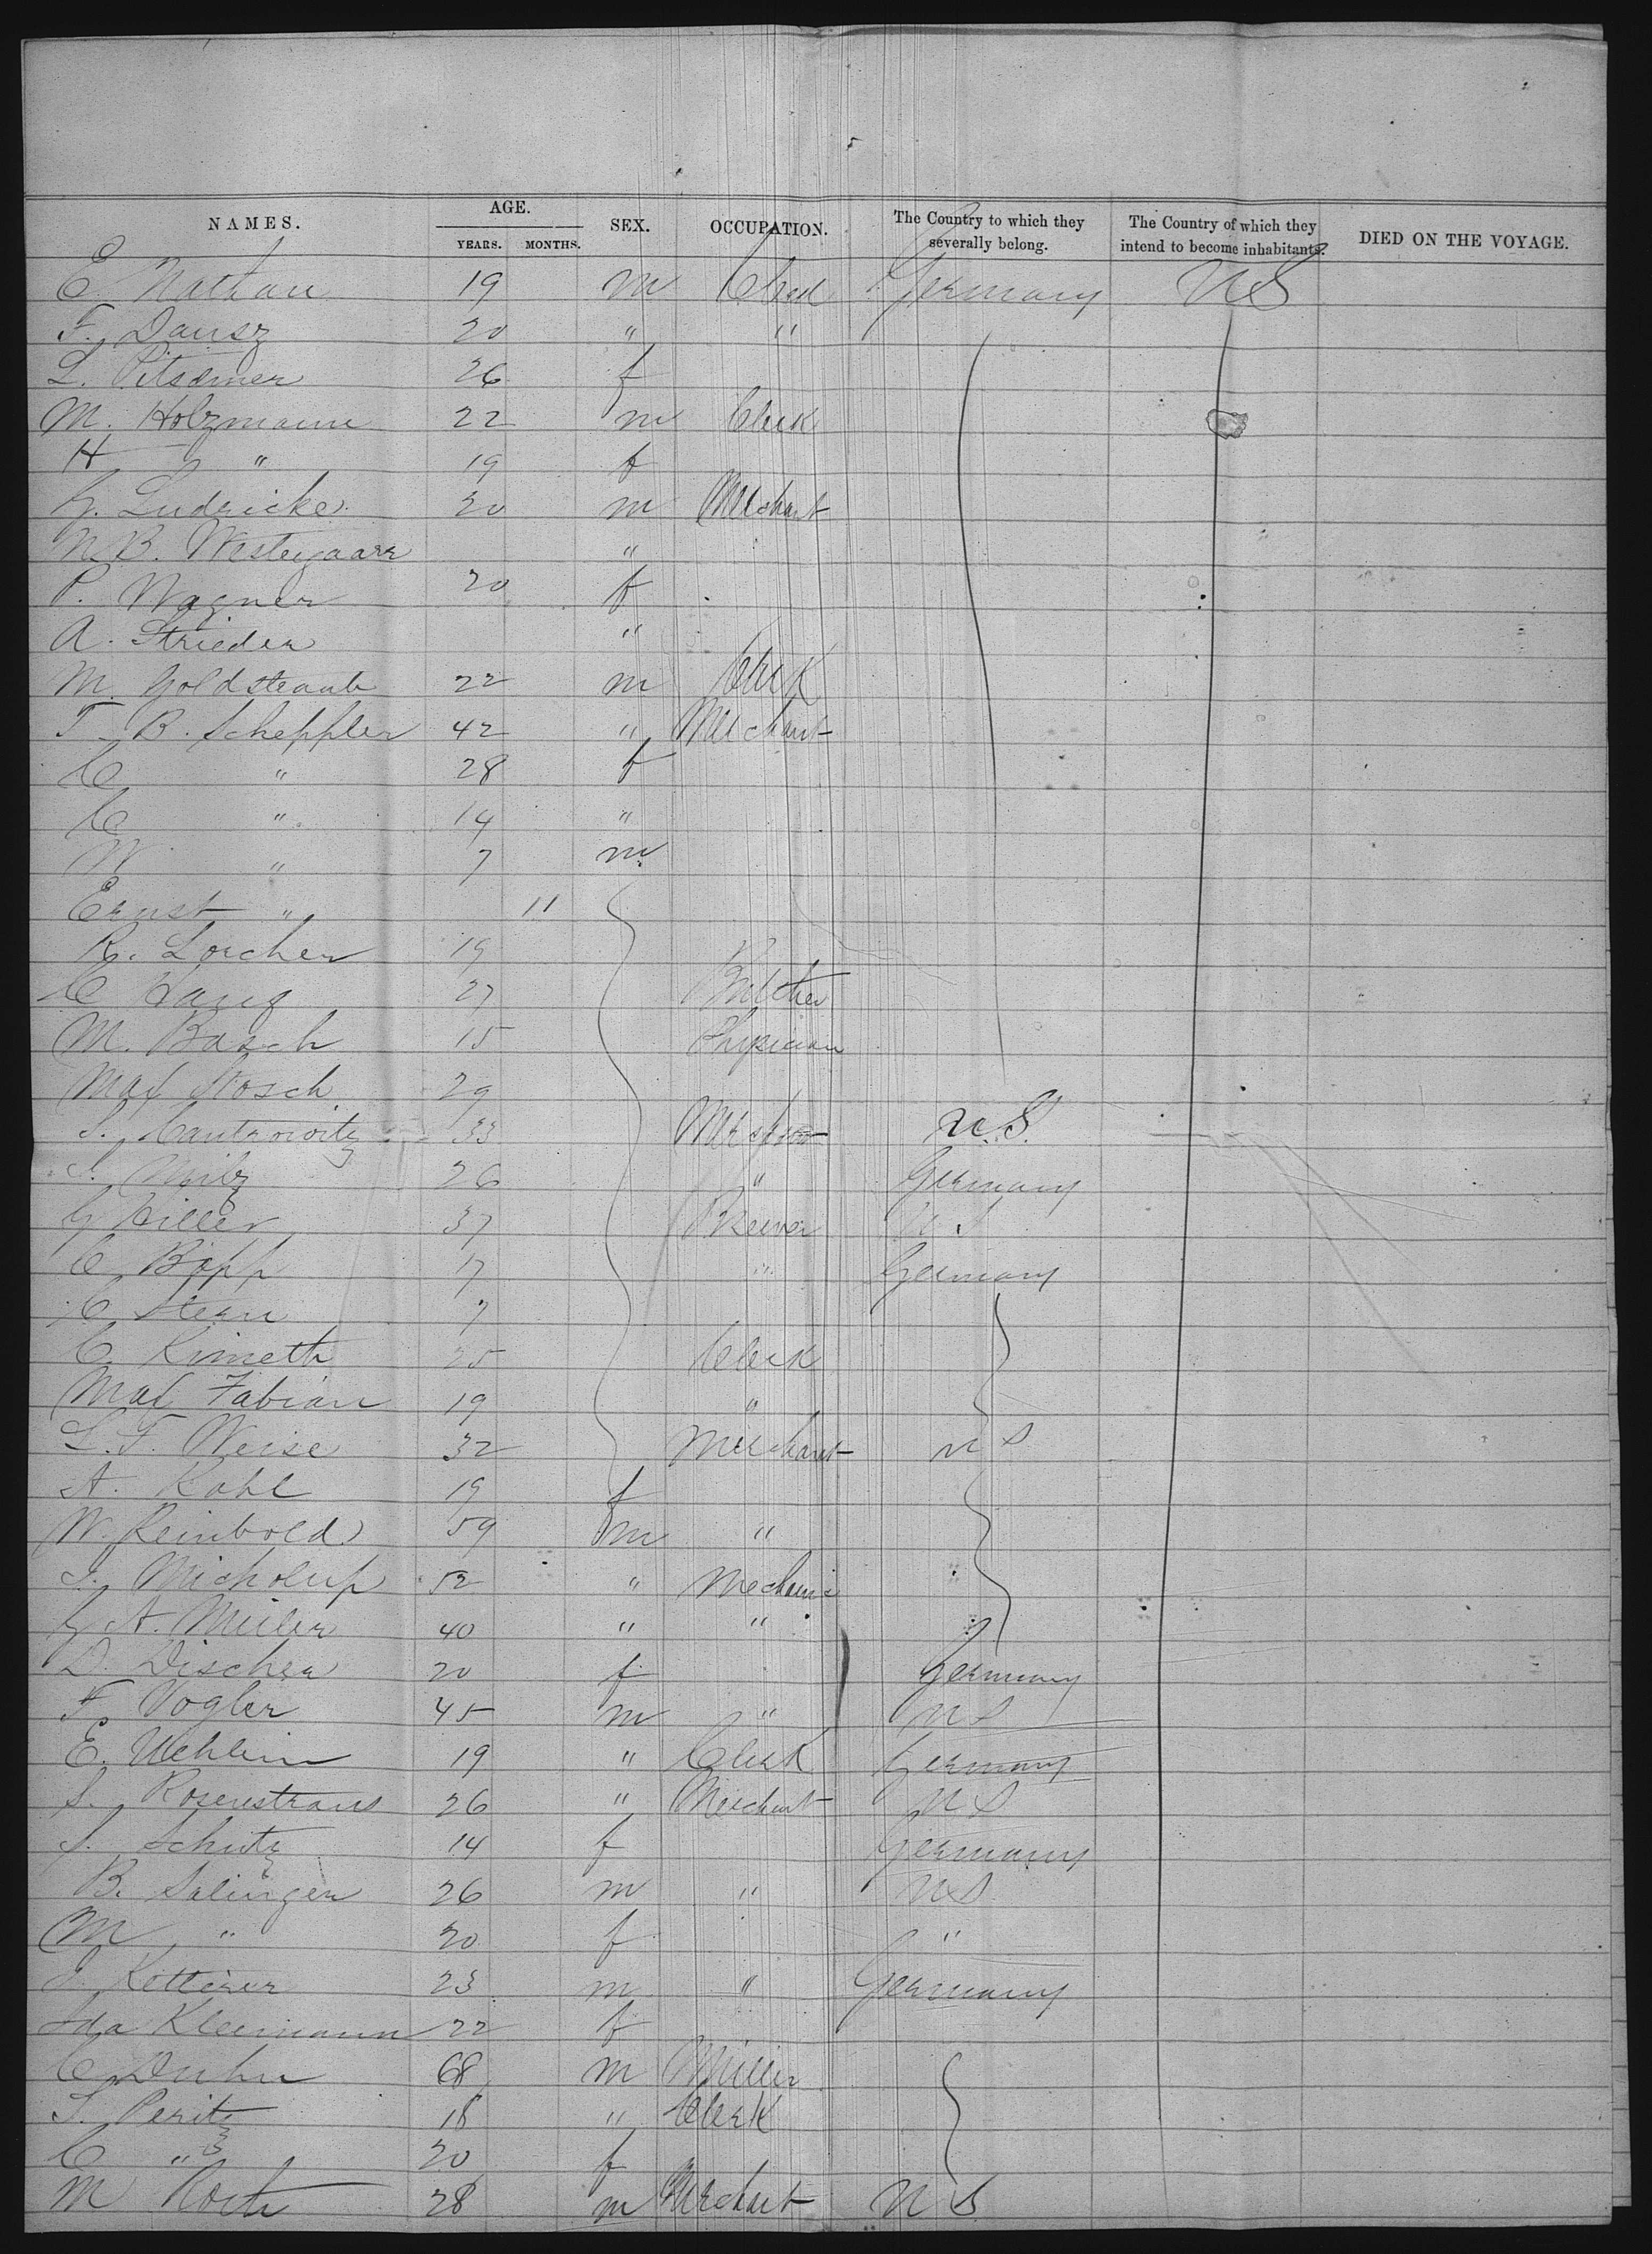 NAMES. AGE. SEX. OCCUPATION. The Country to which they severally belong. The Country of which they intend to become inhabitants. DIED ON THE VOYAGE.
YEARS. MONTHS.
E Nathan 19 m Germany US
F. Dansz 20 " "
L. 26 f
M. Holzmann 22 m Clerk
H " 19 f
G. Ludricke 20 m Merchant
N.B. Westegaarr "
P. Wagner 20 f
A. Strieder "
M. Goldstaub 22 m Clerk
T. B. Scheppler 42 " Merchant
C " 28 f
C " 14 "
W " 7 m
Ernst " 11
R. Lorcher 19
C Lang 27 Butcher
M. Basch 15 Physician
Max Stosch 29
S. Cantrowitz 33 Merchant U.S.
S. Milz 26 " Germany
G Hiller 37 Brewer U S
C Bopp 17 " Germany
C Stern 7
C. Kimeth 25 Clerk
Max Fabian 19 "
L. F. Weise 32 Merchant U S
A. Kahl 19 f
W. Reinbold 59 m "
J. Micholup 52 " Mechanic
G A. Miller 40 " "
D. Discher 20 f Germany
F. Vogler 45 m " U S
E. Uehlein 19 " Clerk Germany
S. Rosenstraus 26 " Merchant U S
S. Schutz 14 f Germany
B. Salinger 26 m " U S
M " 20 f "
J. Ketterer 23 m " Germany
Ida Kleimann 22 f
C Duhn 68 m Miller
S. Peritz 18 " Clerk
C " 20 f
M Roth 28 m Merchant U S